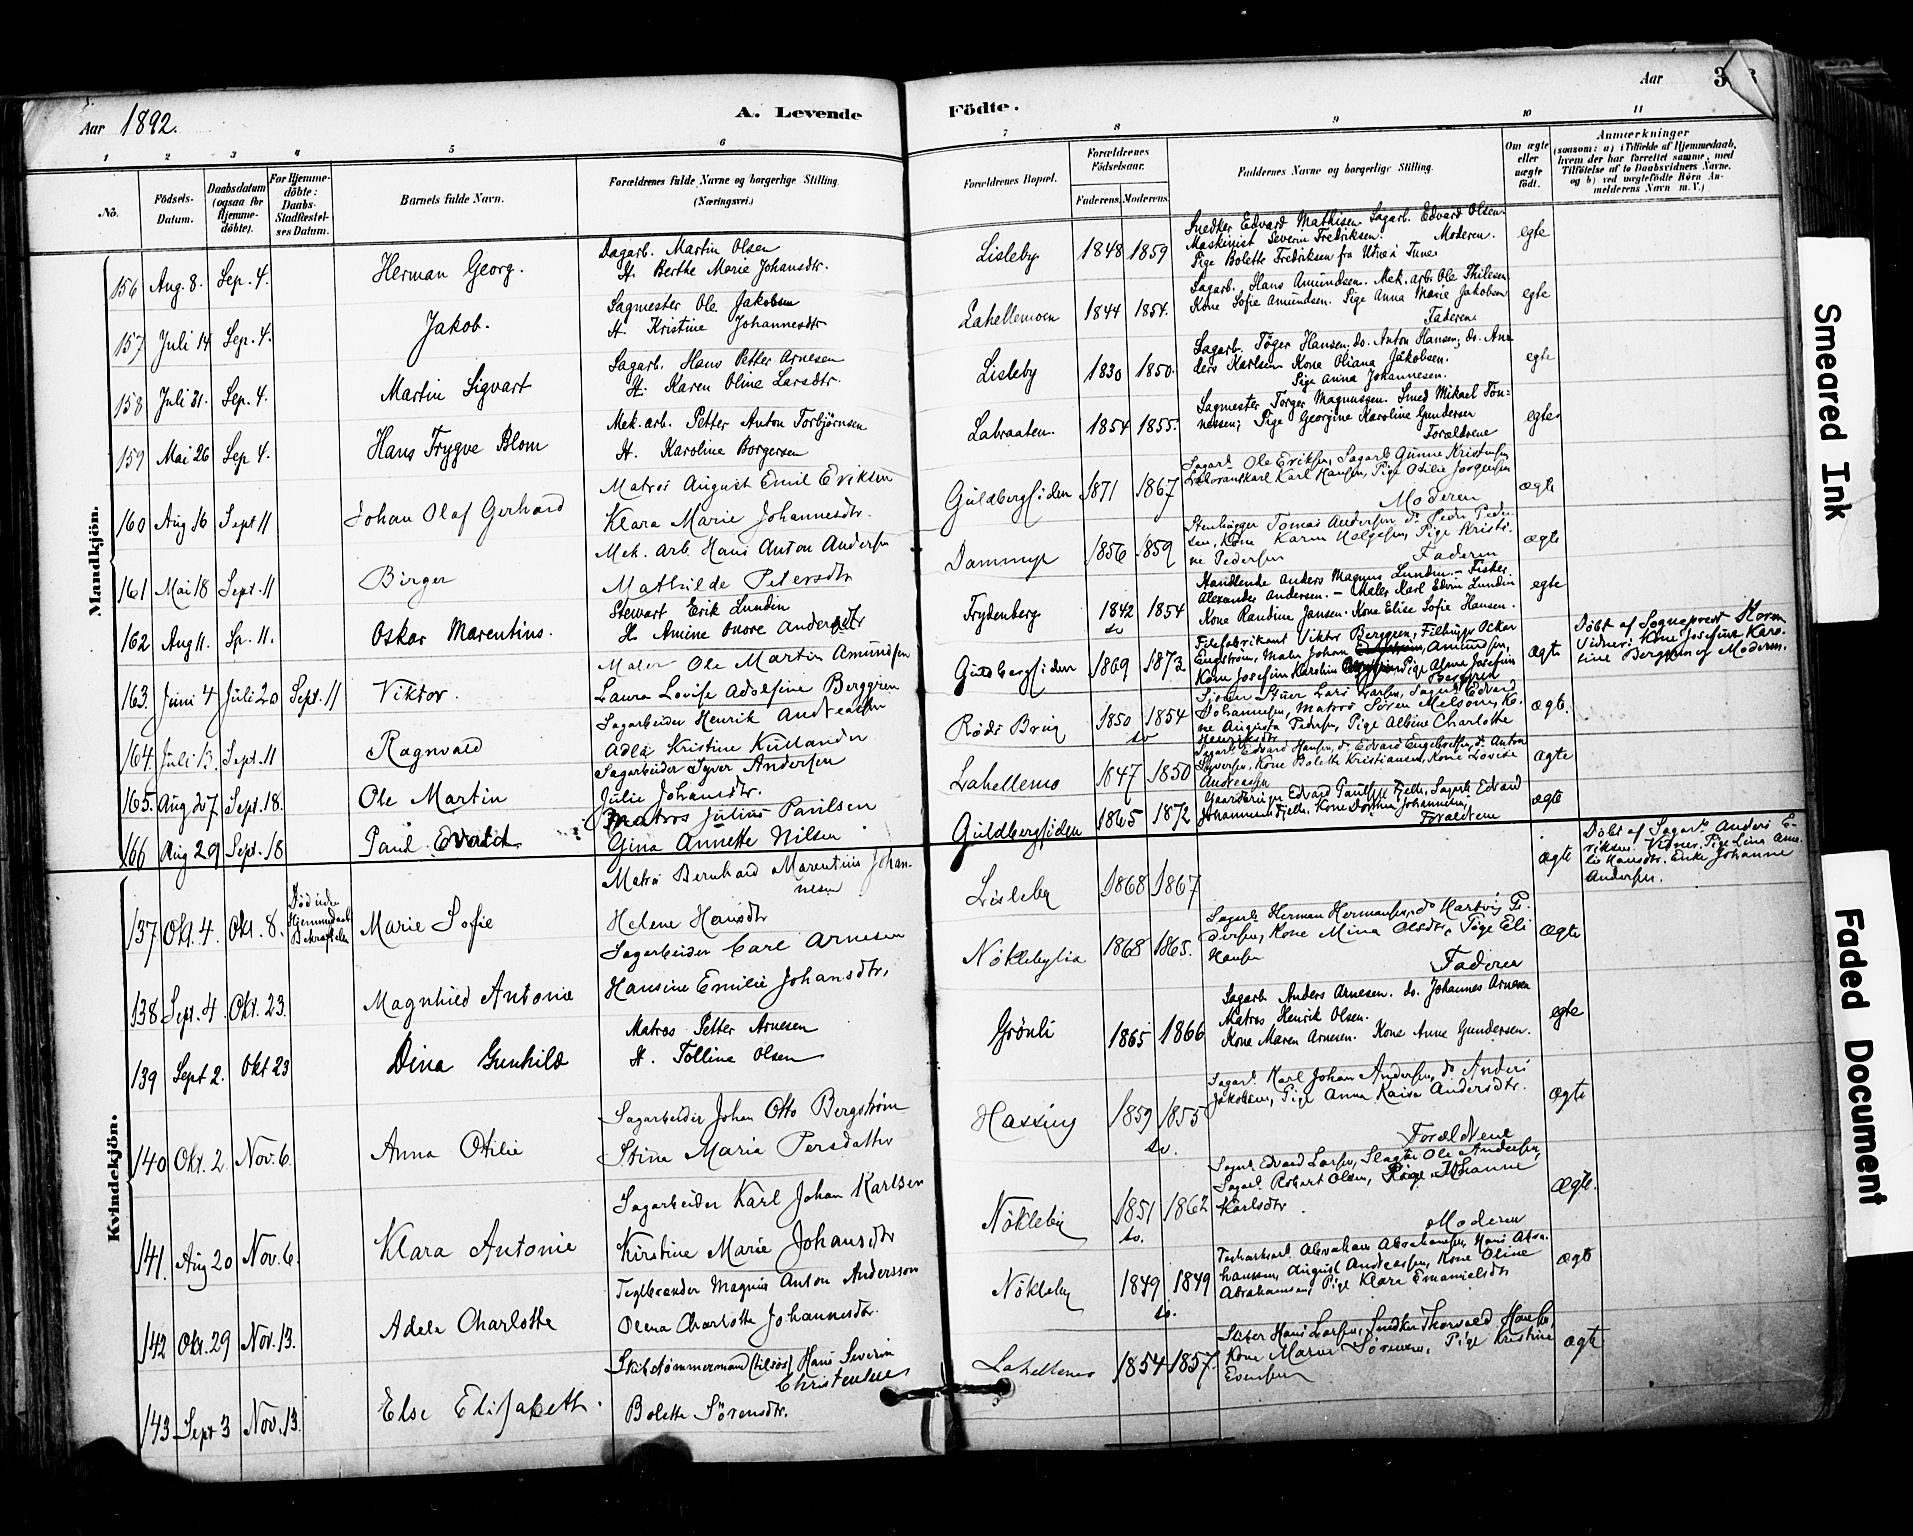 Aar 1892.
A. Levende
Födte.
Aar
3
1 2 3 4 5 6
7 8 9 10 11
No.
Födsels-Datum.
Daabsdatum (ogsaa for Hjemmedöbte).
For Hjemmedöbte: Daabs-Stadfæstelses Datum.
Barnets fulde Navn.
Forældrenes fulde Navne og borgerlige Stilling (Næringsvei.)
Forældrenes Bopæl.
Forældrenes Födselsaar.
Faderens. Moderens.
Faddernes Navne og borgerlige Stilling.
Om ægte eller uægte födt.
Anmærkninger
(saasom: a) i Tilfælde af Hjemmedaab,
hvem der har forrettet samme, med
Tilföielse af to Daabsvidners Navne,
og b) ved uægtefödte Börn Anmelderens Navn m. V.)
Mandkjön.
156 Aug. 8. Sep. 4. Herman Georg.
Dagarb. Martin Olsen
H. Berthe Marie Johansdtr.
Lisleby 1848 1859
Snedker Edvard Mathisen. Sagarb. Edvard Olsen.
Maskinist Severin Fredriksen. Moderen.
Pige Bolette Fredriksen fra Utne i Tune.
egte
157 Juli 14 Sep. 4. Jakob.
Sagmester Ole Jakobsen
H. Kristine Johannesdtr
Lahellemoen 1844 1854.
Sagarb. Hans Amundsen. Mek. arb. Ole Thilesen
Kone Sofie Amundsen. Pige Anna Marie Jakobsen
Faderen.
egte
158 Juli 21. Sep. 4. Martin Sigvart
Sagarb. Hans Petter Arnesen
H. Karen Oline Larsdtr.
Lisleby 1830 1850.
Sagarb. Töger Hansen; do. Anton Hansen; do. Anders Karlsen Kone Oliana Jakobsen.
Pige Anna Johannesen.
egte
159 Mai 26 Sep 4. Hans Trygve Blom
Mek. arb. Petter Anton Torbjörnsen
H. Karoline Borgersen
Labraaten. 1854 1855.
Sagmester Torger Magnussen. Smed Mikael Tönnessen; Pige Georgine Karoline Gundersen
Forældrene
egte
160 Aug 16 Sept 11 Johan Olaf Gerhard
Matros August Emil Eriksen
Klara Marie Johannesdtr.
Guldbergsiden 1871 1867
Sagarb. Ole Eriksen, Sagarb. Gunne Kristensen,
Karl Hansen, Pige Otilie Jörgensen
Moderen
ægte
161 Mai 18 Sept. 11 Birger
Mek. arb Hans Anton Andersen
Mathilde Petersdtr
Dammyr 1856 1859
Stenhugger Tomas Andersen do Peder Pedersen, Kone Karen Helgesen, Pige Kristine Pedersen Faderen
ægte
162 Aug 11. Sp. 11. Oskar Marentius.
Stewart Erik Lundin
H. Amine Onore Andersdtr
Frydenberg 1842 sv 1854
Handlende Anders Magnus Lundin. – Fisker
Alexander Andersen. – Maler Karl Edvin Lundin
Kone Randine Jansen. Kone Elise Sofie Hansen.
egte
163. Juni 4 Juli 20 Sept. 11 Viktor.
Maler Ole Martin Amundsen
Laura Lovise Adolfine Berggren
Guldbergsiden 1869 1872
Filefabrikant Viktor Berggren, Filhugger Oskar
Engström, Maler Johan Amundsen,
Kone Josefine Karoline Pige Alma Josefine
Berggren
ægte
Döbt af Sogneprest Horn
Vidner: Kone Josefine Karoline Berggren og Moderen.
164. Juli 13. Sept. 11 Ragnvald
Sagarbeider Henrik Andreassen
Adla Kristine Kullander
Röds Brug 1850 sv 1854
Lars Larsen, Sagarb. Edvard
Johannesen, Matros Sören Melsom, Kone Augusta Pedersen, Pige Albine Charlotte
Henriksdtr
ægte.
165. Aug 27 Sept. 18. Ole Martin
Sagarbeider Syver Andersen
Julie Johansdtr.
Lahellemo 1847 1850
Sagarb. Edvard Hansen, do Edvard Engebretsen, do Anton
Syversen, Kone Bolette Kristiansen, Kone Lovise
Andreassen
ægte
166 Aug 29 Sept. 18 Paul Evald
Matros Julius Paulsen
Gina Annette Nilsen
Guldbergsiden 1865 1872
Gaardbruger Edvard Paulsen Fjeld, Sagarb. Edvard
Johannesen Fjeld. Kone Dorthea Johannesen,
Forældrene
ægte
Kvindekjön.
137 Okt. 4. Okt. 8. Död uden Hjemmedaabs Bekræftelse Marie Sofie
Matros Bernhard Marentius Johannesen
Helene Hansdtr
Lisleby 1868 1867
ægte
Döbt af Sagarb. Anders Eriksen. Vidner: Pige Lina Amalie Hansdtr. Enke Johanne
Andersen.
138 Sept. 4 Okt. 23. Magnhild Antonie
Sagarbeider Carl Arnesen
Hansine Emilie Johansdtr.
Nöklebylia 1868 1865.
Sagarb. Herman Hermansen, do Hartvig Pedersen, Kone Mina Olsdtr, Pige Eli
Hansen Faderen
ægte
139 Sept 2. Okt 23 Dina Gunhild
Matros Petter Arnesen
H. Tolline Olsen
Grönli 1865 1866
Sagarb. Anders Arnesen. do. Johannes Arnesen
Matros Henrik Olsen.
Kone Maren Arnesen. Kone Anne Gundersen.
egte
140 Okt. 2. Nov. 6. Anna Otilie
Sagarbeider Johan Otto Bergström
Stina Maria Persdatter
Hassing 1859 sv. 1855
Sagarb. Karl Johan Andersen, do Anders
Jakobsen, Pige Anna Kaisa Andersdtr.
Forældrene
ægte
141. Aug 20 Nov. 6. Klara Antonie
Sagarbeider Karl Johan Karlsen
Kirstine Marie Johansdtr
Nökleby 1851 sv. 1862
Sagarb. Edvard Larsen, Slagter Ole Andersen,
Sagarb. Robert Olsen, Pige Johanne
Karlsdtr.
Moderen
ægte.
142 Okt. 29 Nov. 13. Adela Charlotte
Teglbrænder Magnus Anton Andersson
Olena Charlotte Johannesdtr.
Nökleby 1849 sv. 1849
Abraham Abrahamsen, Hans Abrahamsen, August Andreassen, Kone Oline
Abrahamsen, Pige Klara Emanuelsdtr
ægte
143 Sept 3 Nov. 13. Else Elisabeth.
Skibstømmermand (tilsøs) Hans Severin
Christensen
Bolette Sörensdtr.
Lahellemo 1854 1857.
Hans Larsen, Snedker Thorvald Hansen,
Kone Maren Sörensen, Pige Kristine
Evensen
ægte
Smeared Ink
Faded Document